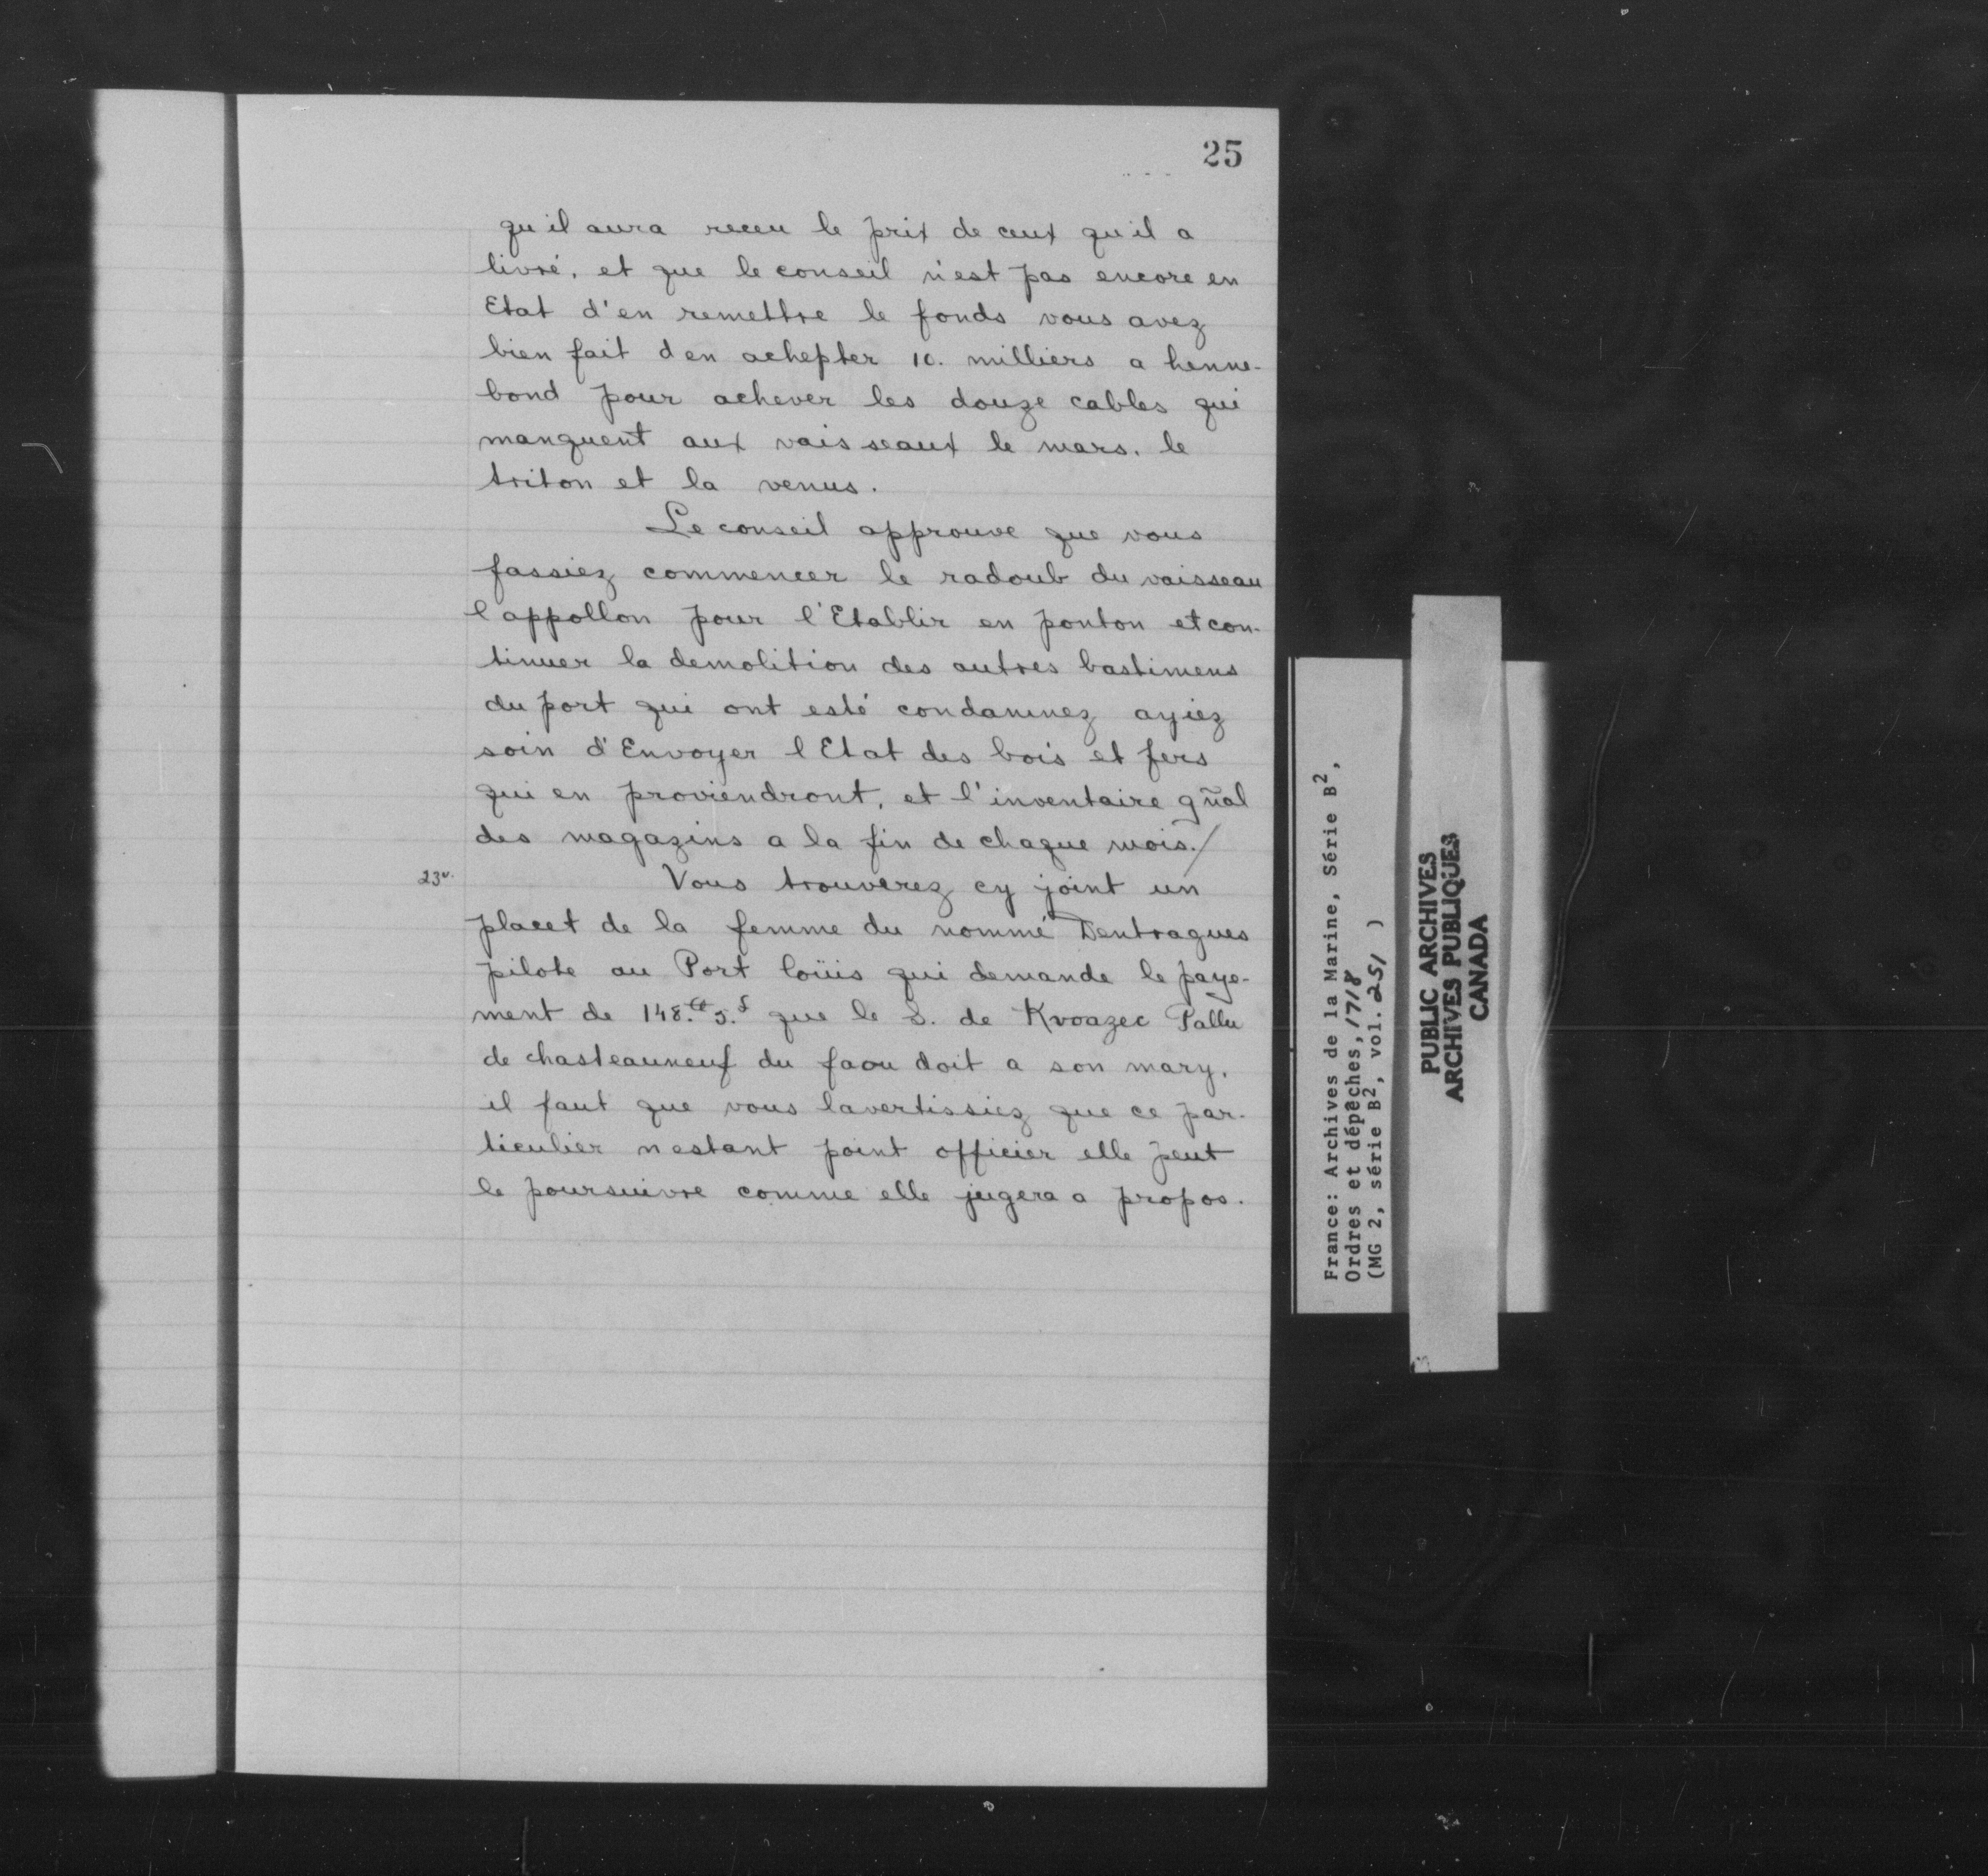 25
qu il aura receu le prix de ceux qu il a
livré, et que le conseil n'est pas encore en
Etat d'en remettre le fonds vous avez
bien fait d en achepter 10. milliers a henne-
bond pour achever les douze cables qui
manquent aux vaisseaux le mars, le
triton et la venus.
Le conseil approuve que vous
fassiez commencer le radoub du vaisseau
l appollon pour l'Etablir en ponton et con-
tinuer la demolition des autres bastimens
du port qui ont esté condamnez ayiez
soin d'Envoyer l Etat des bois et fers
qui en proviendront, et l'inventaire gñal
des magazins a la fin de chaque mois./
23v. Vous trouverez cy joint un
placet de la femme du nommé Dentragues
pilote au Port loüis qui demande le paye-
ment de 148.tt 5.s que le S. de Kvoazec Pallu
de chasteauneuf du faou doit a son mary,
il faut que vous lavertissiez que ce par-
ticulier nestant point officier elle peut
le poursuivre comme elle jugera a propos.
France: Archives de la Marine, Série B²,
Ordres et dépêches, 1718
(MG 2, série B², vol. 251 )
PUBLIC ARCHIVES
ARCHIVES PUBLIQUES
CANADA